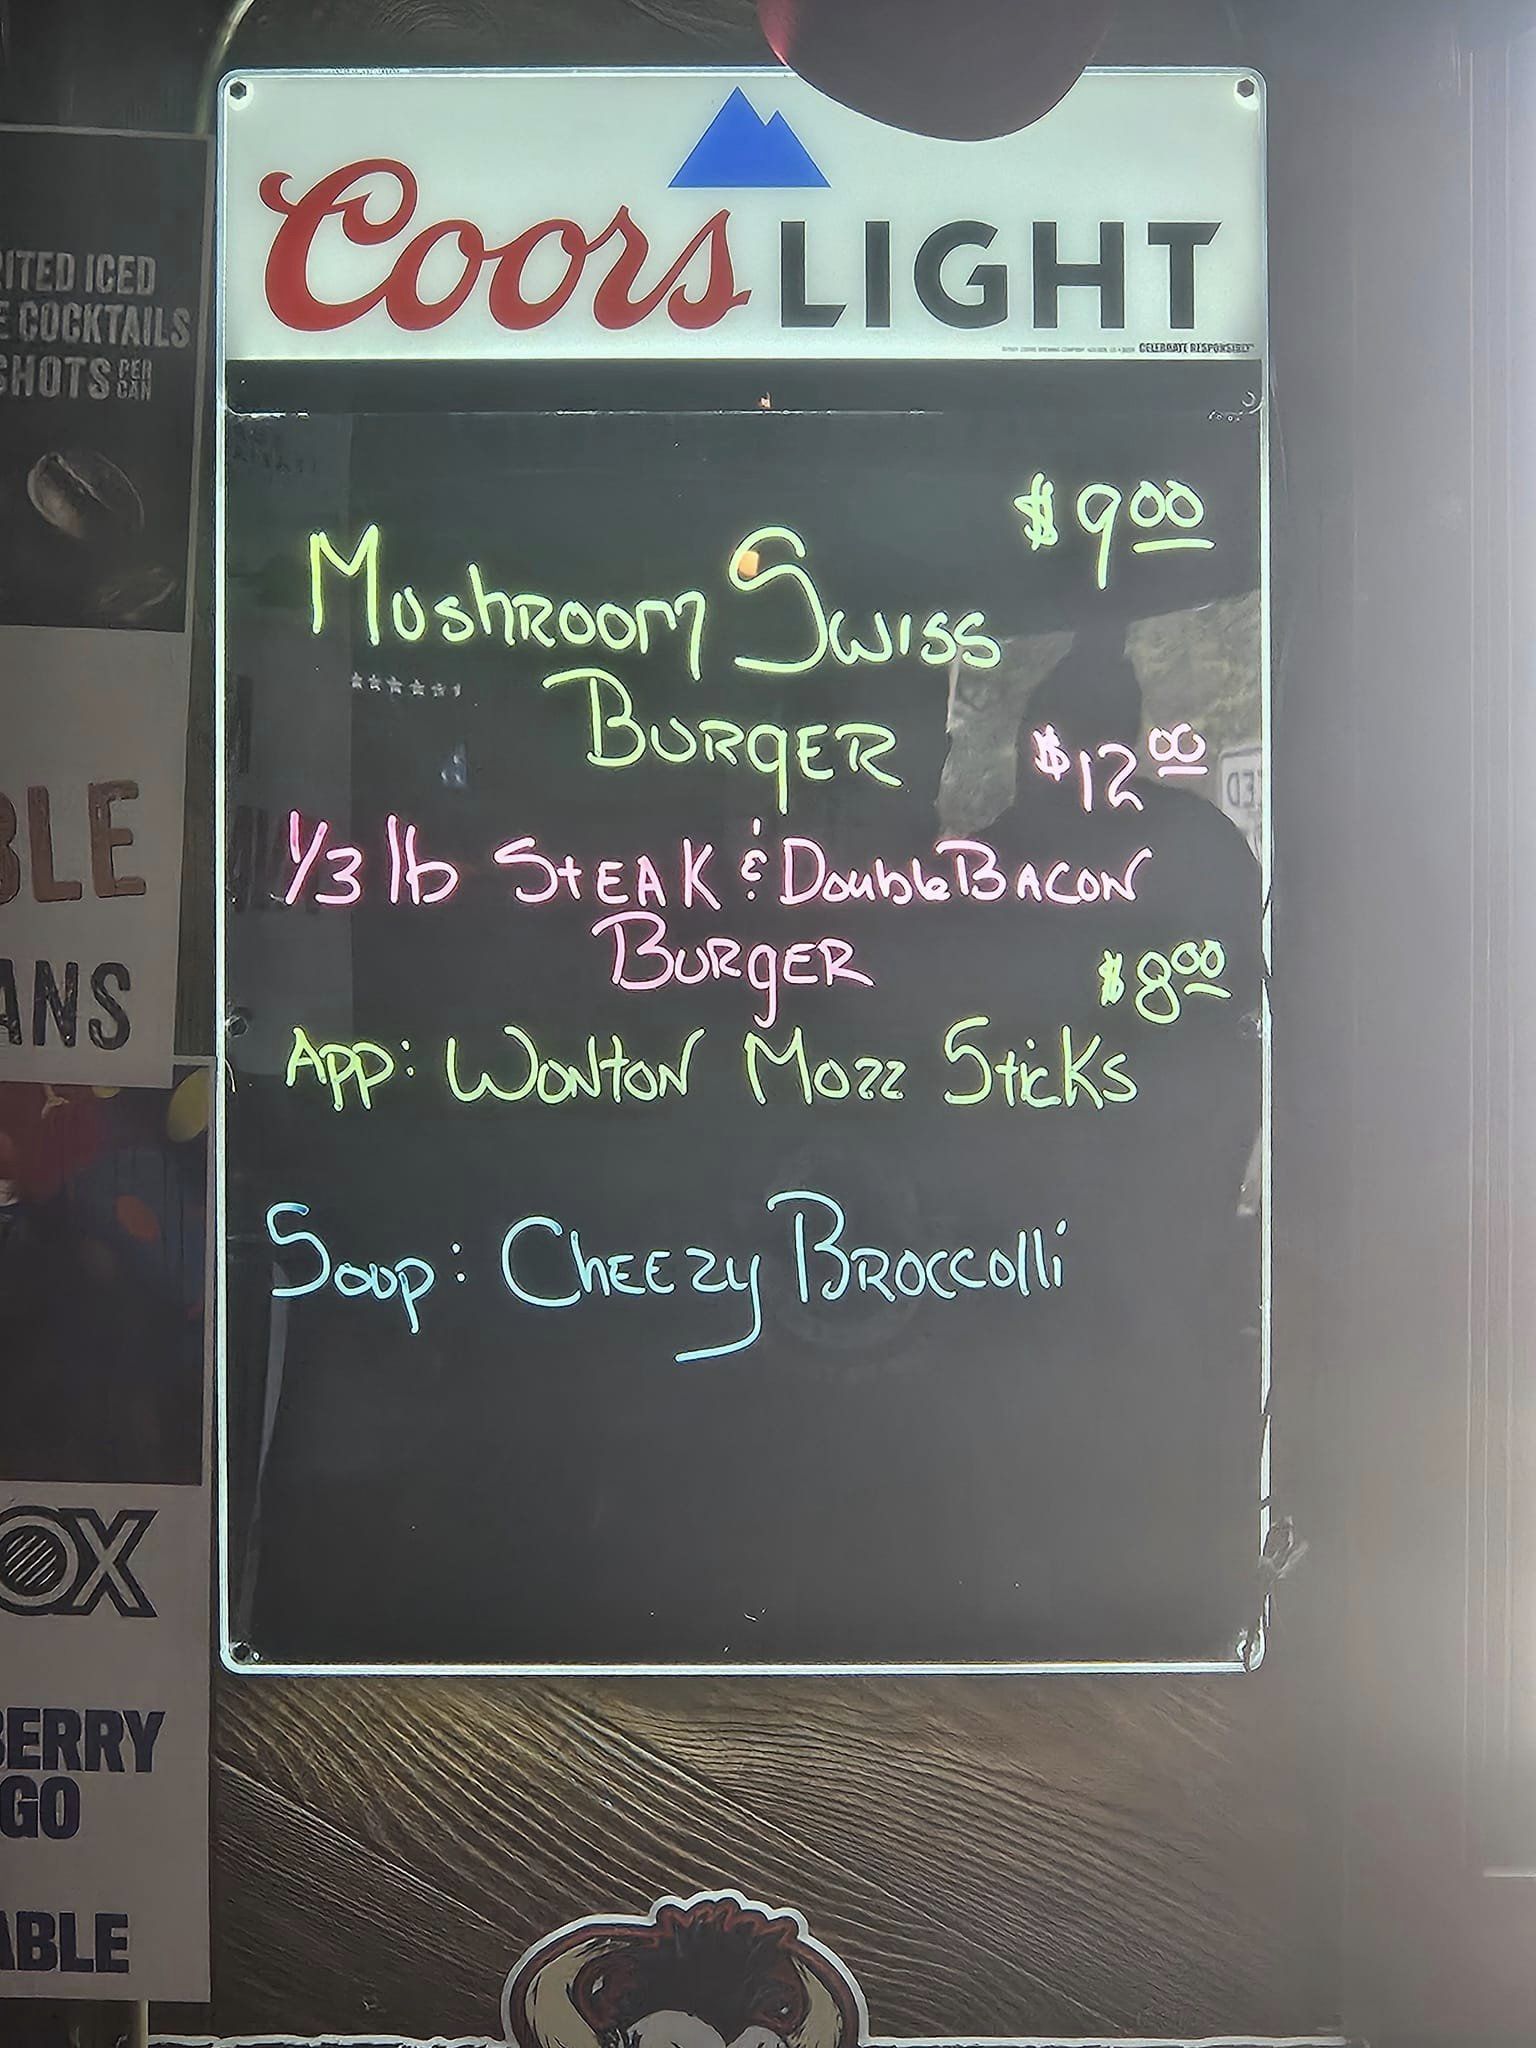 Coors LIGHT
CELEBRATE RESPONSIBLY
$9.00
MUSHROOM SWISS
BURGER
$12.00
1/3 lb STEAK & Double BACON
BURGER
$8.00
APP: WONTON MOZZ STICKS
Soup: CHEEZY BROCCOlli
RITED ICED
E COCKTAILS
SHOTS PER CAN
BLE
ANS
OX
BERRY
GO
ABLE